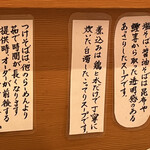 塩そば醤油そばは昆布や
鰹节から取った透明感のある
あっさりしたスープです。
煮込みは鶏と水だけで丁寧に
炊いた白濁したこってりスープです。
つけそばは他のらーめんより
茹で時間が長くなります
提供時、オーダーが前後する